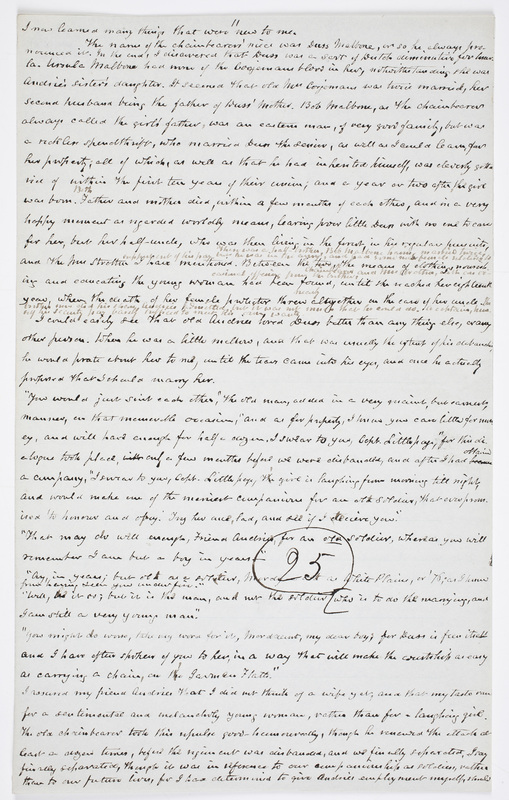 I now learned many things that were new to me.
"The name of the chainbearer's niece was Duss Malbone, or so he always pro-
nounced it. In the end, I discovered that Duss was a sort of Dutch diminutive for Ursu-
la. Ursula Malbone had none of the Coejemans blood in her, notwithstanding she was
Andries's sister's daughter. It seemed that old Mrs. Coejemans was twice married, her
second husband being the father of Duss' Mother. Bob Malbone, as the chainbearer
always called the girl's father, was an eastern man, of very good family, but was
a reckless spendthrift, who married Duss the senior, as well as I could learn, for
her property; all of which, as well as that he had inherited himself, was cleverly gotten
rid of within the first ten years of their union; and a year or two after the girl
was born. Both
Father and mother died, within a few months of each other, and in a very
happy moment as regarded worldly means, leaving poor little Duss with no one to care
for her, but her half-uncle, who was then living in the forest, in his regular pursuits,
and the Mrs. Stratton I have mentioned.
Between the two, the means of clothing, nourish-
ing and educating the young woman had been found, until she reached her eighteenth
year, when the death of her female protector threw her altogether on the care of her uncle.
I could easily see that old Andries loved Duss better than any thing else, or any
other person. When he was a little mellow, and that was usually the extent of his debauches,
he would prate about her to me, until the tears came into his eyes, and once he actually
proposed that I should marry her.
"You would just suit each other," the old man, added in a very quaint, but earnest,
manner, on that memorable occasion; "and as for property, I know you care little for mon-
ey, and will have enough for half-a-dozen. I swear to you, Capt. Littlepage," for this di-
alogue took place, only a few months before we were disbanded, and after I had obtained
a company, "I swear to you, Capt. Littlepage, the girl is laughing from morning till night,
and would make one of the merriest companions for an old soldier, that ever prom-
ised to 'honour and obey.' Try her once, lad, and see if I deceive you."
"That may do well enough, friend Andries, for an old soldier, whereas you will
remember I am but a boy in years—"
25
"Ay, in years; but old as a soldier, Mordaunt as White Plains, or '76; as I know
from having seen you under fire."
"Well, be it so; but it is the man, and not the soldier, who is to do the marrying, and
I am still a very young man."
"You might do worse, take my word for it, Mordaunt, my dear boy; for Duss is fun itself
and I have often spoken of you to her, in a way that will make the courtship as easy
as carrying a chain, on the Jarmen Flatts."
I assured my friend Andries that I did not think of a wife yet, and that my taste ran
for a sentimental and melancholy young woman, rather than for a laughing girl.
The old chainbearer took this repulse good humouredly, though he renewed the attack at
least a dozen times, before the regiment was disbanded, and we finally separated. I say
finally separated, though it was in reference to our companionship as soldiers, rather
than to our future lives, for I had determined to give Andries employment myself, should